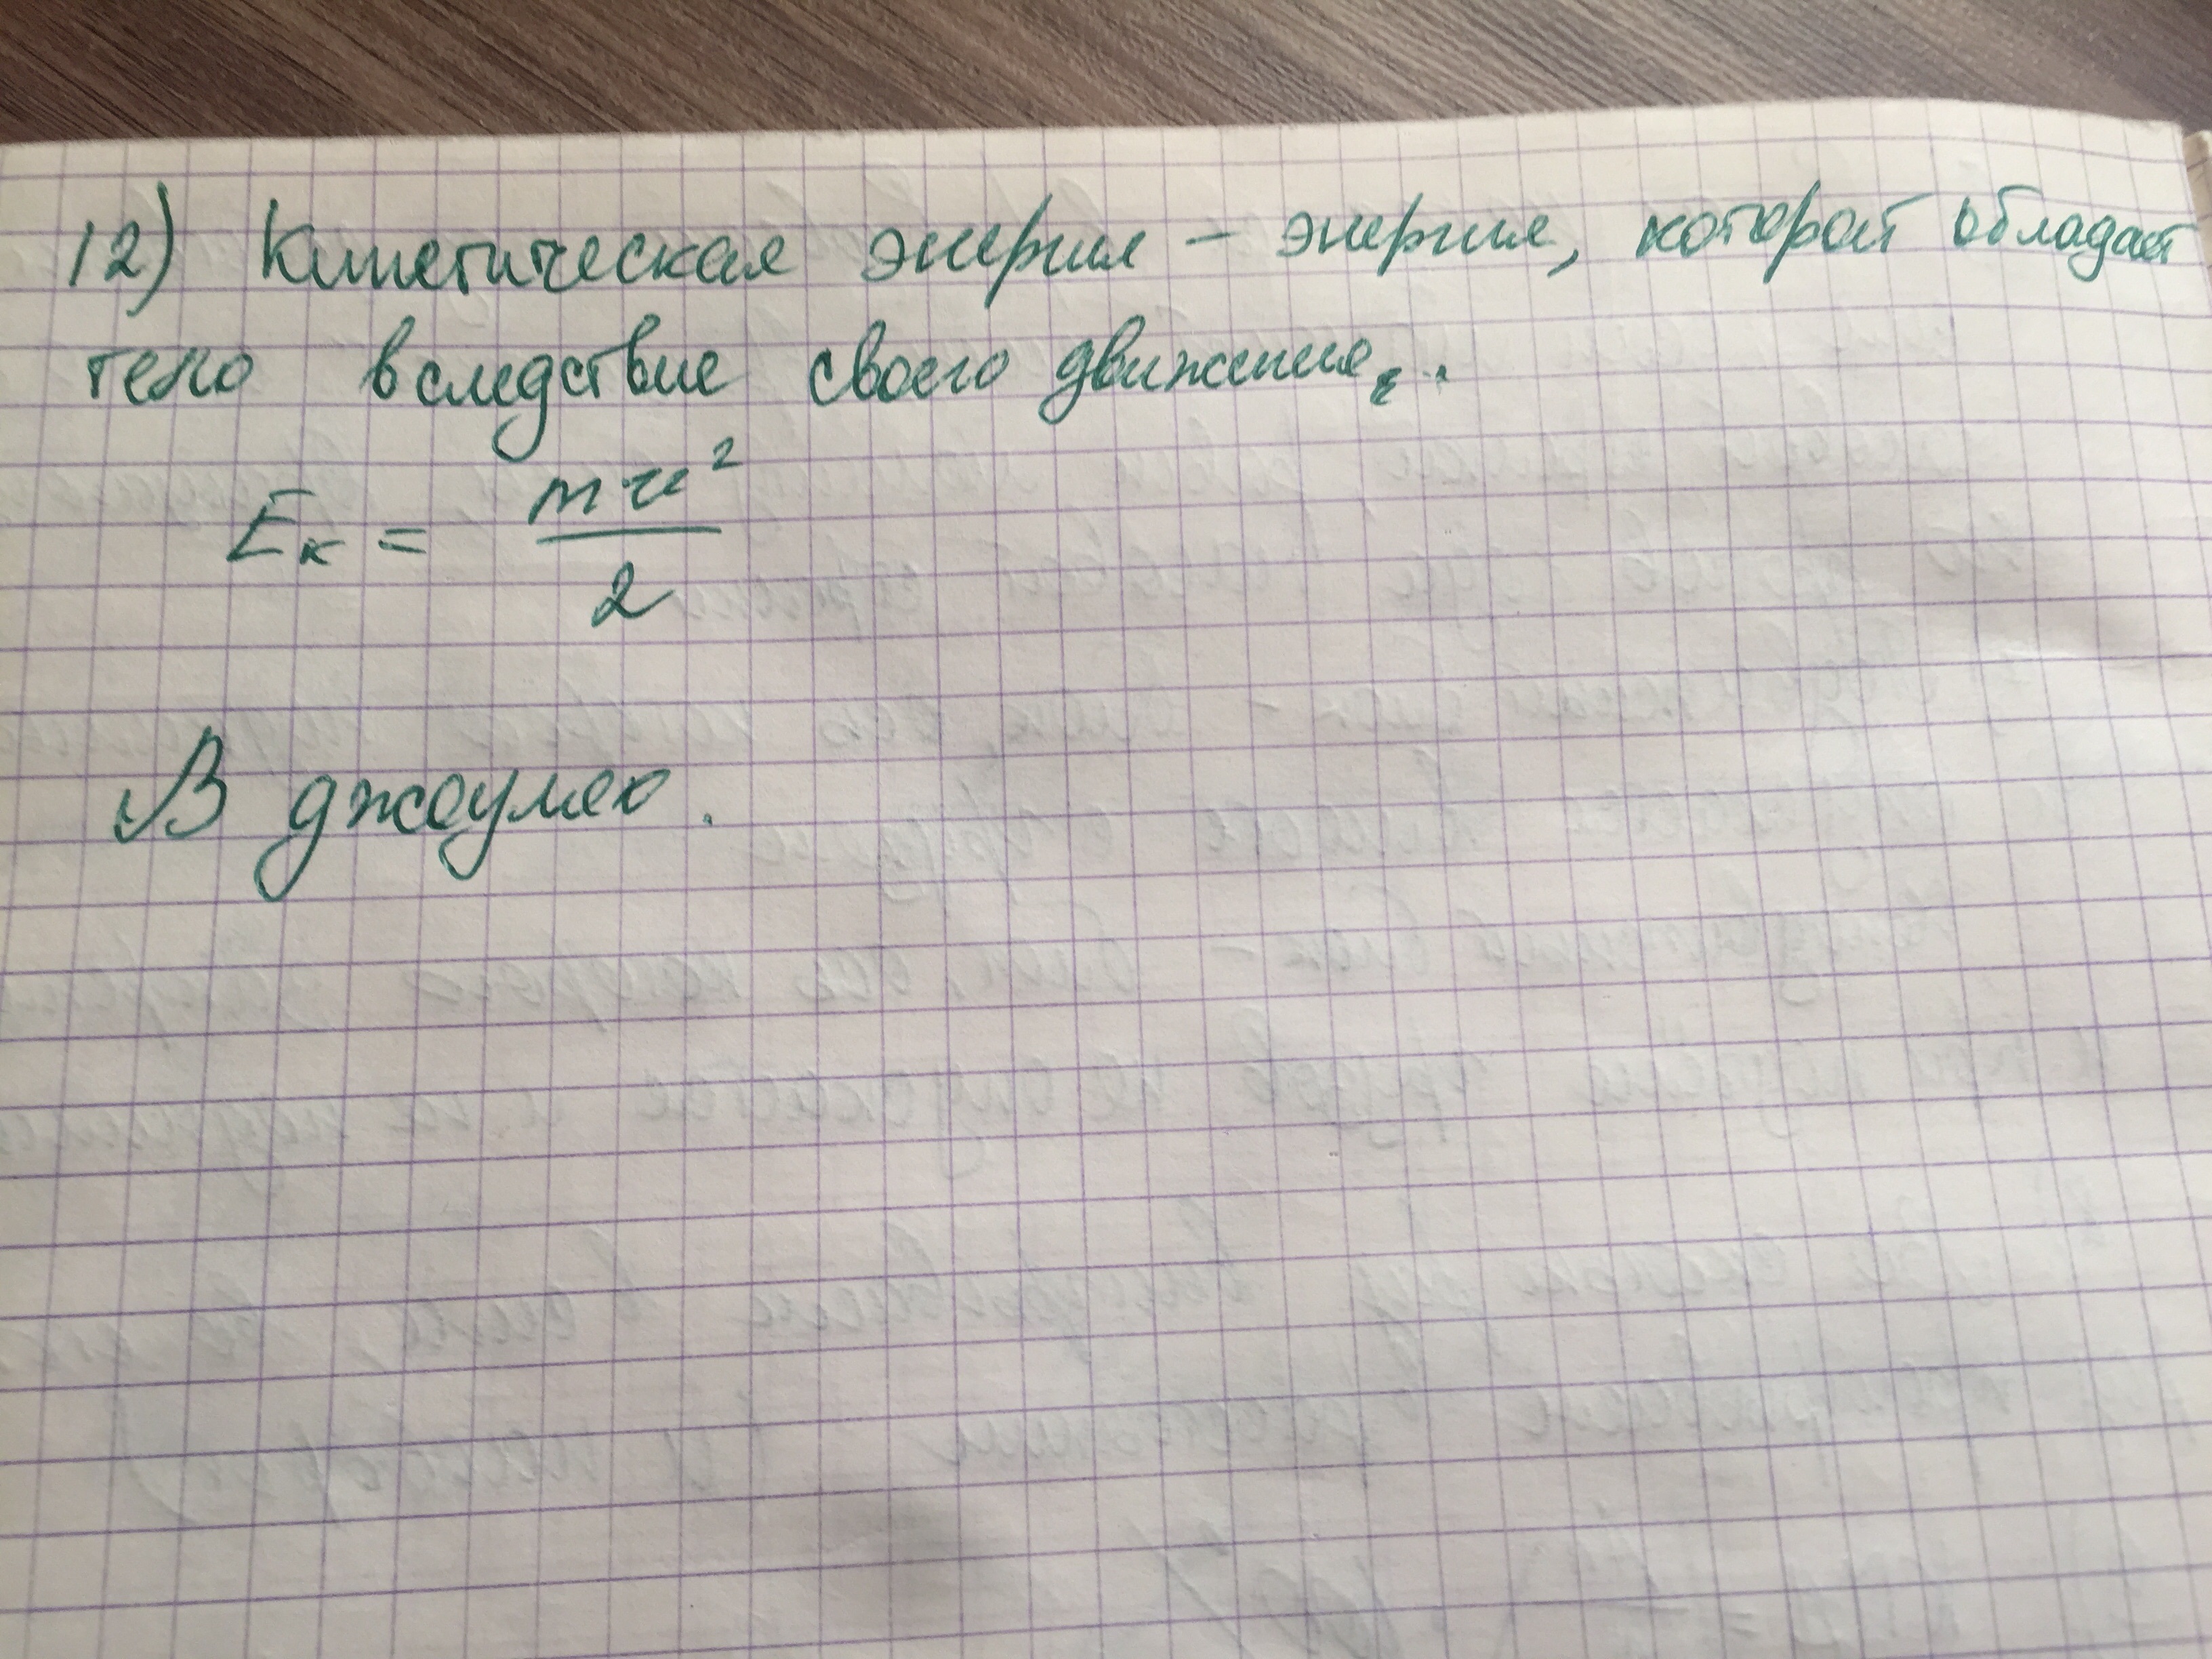 12) Кинетическая энергия – энергия, которой обладает
тело вследствие своего движения.
Eк = mv²/2
В джоулях.